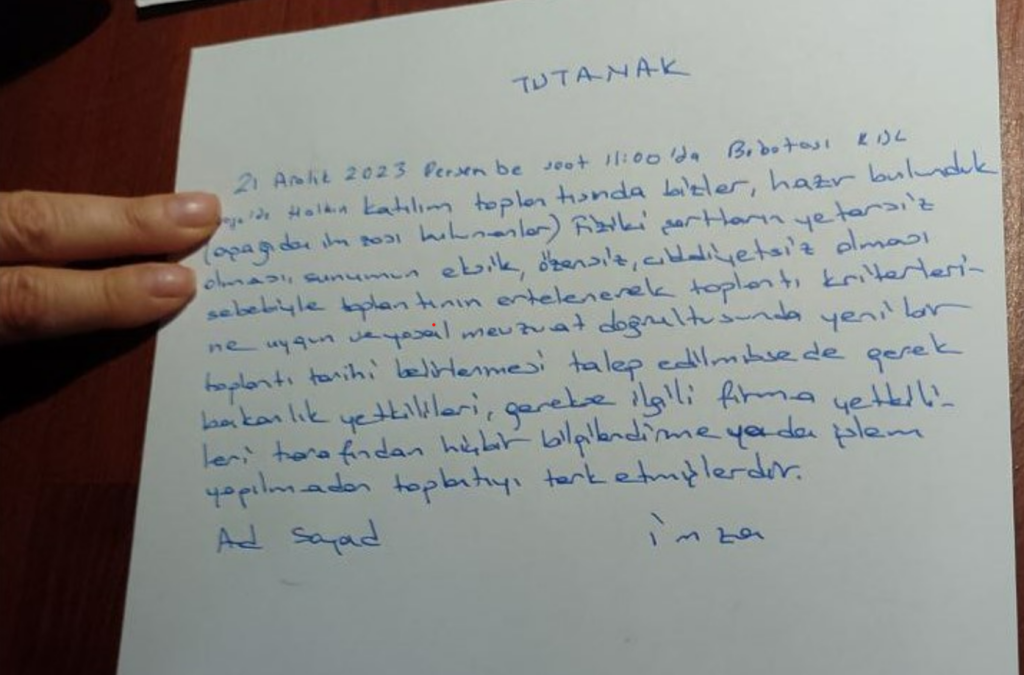 TUTANAK
21 Aralık 2023 Perşembe saat 11:00'da
Halkın katılım toplantısında bizler, hazır bulunduk
(aşağıda imzası bulunanlar) Fiziki şartların yetersiz
olması, sunumun eksik, özensiz, ciddiyetsiz olması
sebebiyle toplantının ertelenerek toplantı kriterleri-
ne uygun ve yasal mevzuat doğrultusunda yeni bir
toplantı tarihi belirlenmesi talep edilmişse de gerek
bakanlık yetkilileri, gerekse ilgili firma yetkili-
leri tarafından hiçbir bilgilendirme yada işlem
yapılmadan toplantıyı terk etmişlerdir.
Ad Soyad İmza